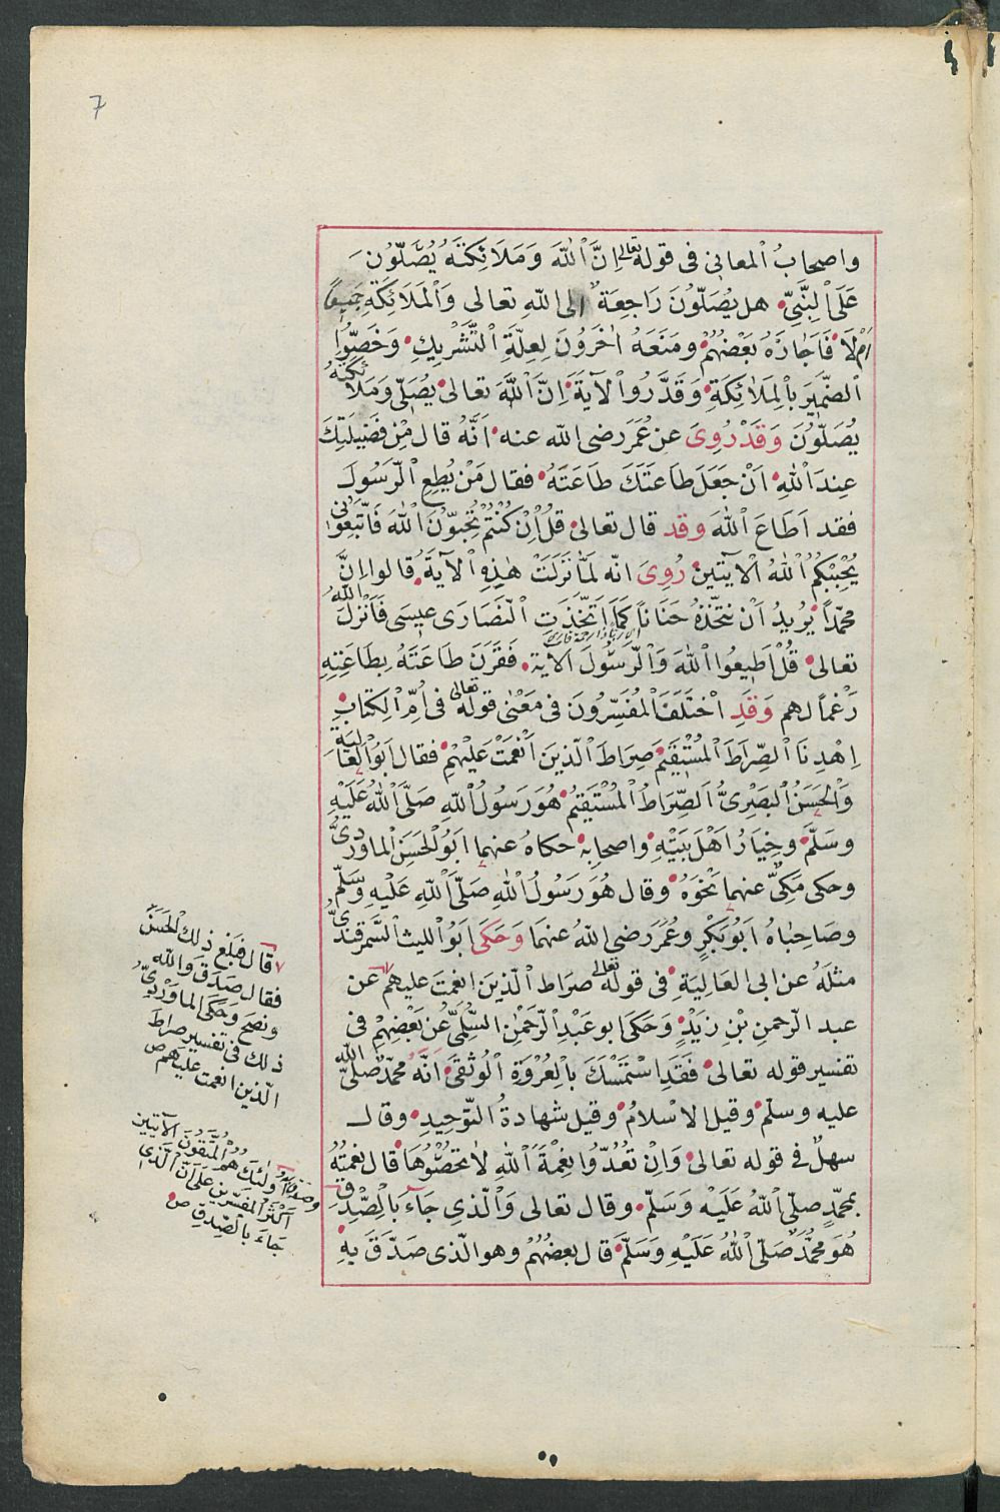 7
واصحابُ الْمعانی فی قوله تعالی اِنَّ اللّٰهَ وَمَلَائِكَتَهُ يُصَلُّونَ
عَلَى النَّبِیِّ هل يُصَلّونَ رَاجِعَة الی اللّٰهِ تعالی وَالْمَلَائِكَةِ جَمِيعًا
اَمْ لَا فَاَجَازَهُ بَعْضُهُمْ ومَنَعَهُ اٰخَرُونَ لِعِلَّةِ التَّشْرِيكِ وَخَصُّوا
الضَّمِيرَ بِالْمَلٰائِكَةِ وَقَدَّرُوا الْآيَةَ اِنَّ اللّٰهَ تعالی يُصَلّی وَمَلَائِكَتُهُ
يُصَلّونَ وَقَدْ رُوِیَ عن عُمَرَ رضی اللّٰه عنه اَنَّهُ قال مِنْ فَضِيلَتِكَ
عِندَ اللّٰهِ اَنْ جَعَلَ طَاعَتَكَ طَاعَتَهُ فقال مَنْ يُطِعِ الرَّسُولَ
فقد اَطَاعَ اللّٰهَ وقد قال تعالی قُلْ اِنْ كُنْتُمْ تُحِبّونَ اللّٰهَ فَاتَّبِعُونی
يُحْبِبْكُمُ اللّٰهُ الْآيَتَينِ رُوِیَ انّه لمَّا نَزَلَتْ هٰذِهِ الْآيَةُ قالوا اِنَّ
محمّدًا يُرِيدُ اَنْ نَتَّخِذَهُ حَنَانًا كَمَا اتَّخَذَتِ النَّصَارَی عيسَی فَاَنْزَلَ اللّٰهُ
تعالی قُلْ اَطِيعُوا اللّٰهَ وَالرَّسُولَ الآية فَقَرَنَ طَاعَتَهُ بِطَاعَتِهِ
رَغْمًا لهم وَقَدِ اخْتَلَفَ الْمُفَسِّرُونَ فی مَعْنٰی قوله تعالی فی اُمِّ الْكِتَابِ
اِهْدِنَا الصِّرَاطَ الْمُسْتَقِيمَ صِرَاطَ الَّذِينَ اَنْعَمْتَ عَلَيْهِمْ فقال اَبُو الْعَالِيَةِ
وَالْحَسَنُ الْبَصْرِیُّ الصِّرَاطُ الْمُسْتَقِيمُ هُوَ رَسُولُ اللّٰهِ صَلَّی اللّٰهُ عَلَيْهِ
وسَلَّمَ وخِيَارُ اَهْلِ بَيْتِهِ واصحابِهِ حكاهُ عنهما اَبُو الْحَسَنِ الْماوَرْدِیُّ
وحكی مَكِّیٌّ عنهما نَحْوَهُ وقال هُوَ رَسُولُ اللّٰهِ صَلَّی اللّٰهِ عَلَيْهِ وَسَلَّم
وصَاحِبَاهُ اَبُو بَكْرٍ وعُمَرَ رضی اللّٰهُ عنهمَا وَحَكَی اَبُو اللَّيث السَّمَرقندیُّ
مثلَهُ عن ابی العَالِيَةِ فی قوله تعالی صِرَاطَ الَّذِينَ انعمتَ عليهم عَن
عبد الرّحمنِ بْنِ زيدٍ وَحَكَی ابو عَبْدِ الرّحمٰنِ السُّلَمِیُّ عَنْ بَعْضِهِمْ فی
تفسير قوله تعالی فَقَدِ اسْتَمْسَكَ بِالْعُرْوَةِ الْوُثْقَی اَنّهُ محمّدٌ صَلَّی اللّٰه
عليه وسلّم وقيل الاسْلامُ وقيل شهادةُ التّوْحِيدِ وقال
سهلٌ فی قوله تعالی وَاِنْ تَعُدُّوا نِعْمَةَ اللّٰهِ لَا تحصُوهَا قال نِعْمَتُهُ
بمحمّدٍ صلّی اللّٰهُ عَلَيْهِ وَسَلَّم وقال تعالی وَالَّذِی جَاءَ بِالصِّدْقِ
هُوَ محمّدٌ صَلَّی اللّٰهُ عَلَيْهِ وَسَلَّمَ قال بعضُهُمْ وهو الّذی صَدَّقَ بِهِ
قال فبَلَغ ذلك الْحَسَنَ
فقال صَدَقَ واللّه
ونصح وَحَكَی الْماوَرْدِیُّ
ذلك فی تفسير صِراطَ
الّذين انعمت عليهم ص
وصدّق به اُولٰئِكَ هُمُ الْمُتَّقُونَ الآيتين
اَكْثَرُ الْمُفَسّرِينَ عَلَی اَنّ الّذی
جَاءَ بالصّدقِ ص